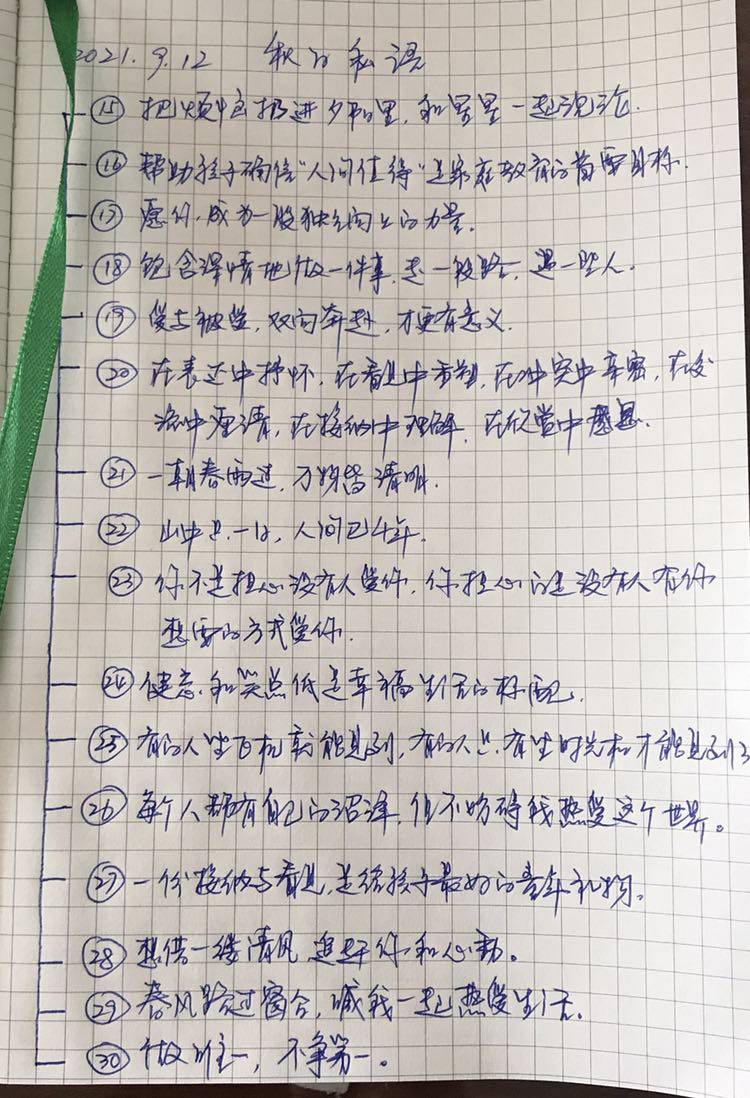 2021.9.12 秋的私语
⑮ 把烦恼扔进夕阳里,和星星一起沉沦.
⑯ 帮助孩子确信"人间值得"是家庭教育的首要目标.
⑰ 愿你,成为一股独立向上的力量.
⑱ 饱含深情地做一件事,走一段路,遇一些人.
⑲ 爱与被爱,双向奔赴,才更有意义.
⑳ 在表达中抒怀,在看见中重塑,在冲突中亲密,在交
流中厘清,在接纳中理解,在欣赏中感恩.
㉑ 一朝春雨过,万物皆清明.
㉒ 山中只一日,人间已千年.
㉓ 你不是担心没有人爱你,你担心的是没有人有你
想要的方式爱你.
㉔ 健忘和笑点低是幸福生活的标配.
㉕ 有的人坐飞机就能见到,有的人只有坐时光机才能见到了
㉖ 每个人都有自己的沼泽,但不妨碍我热爱这个世界。
㉗ 一份接纳与看见,是给孩子最好的童年礼物。
㉘ 想借一缕清风,追赶你和心动。
㉙ 春风路过窗台,喊我一起热爱生活.
㉚ 做唯一,不争第一。